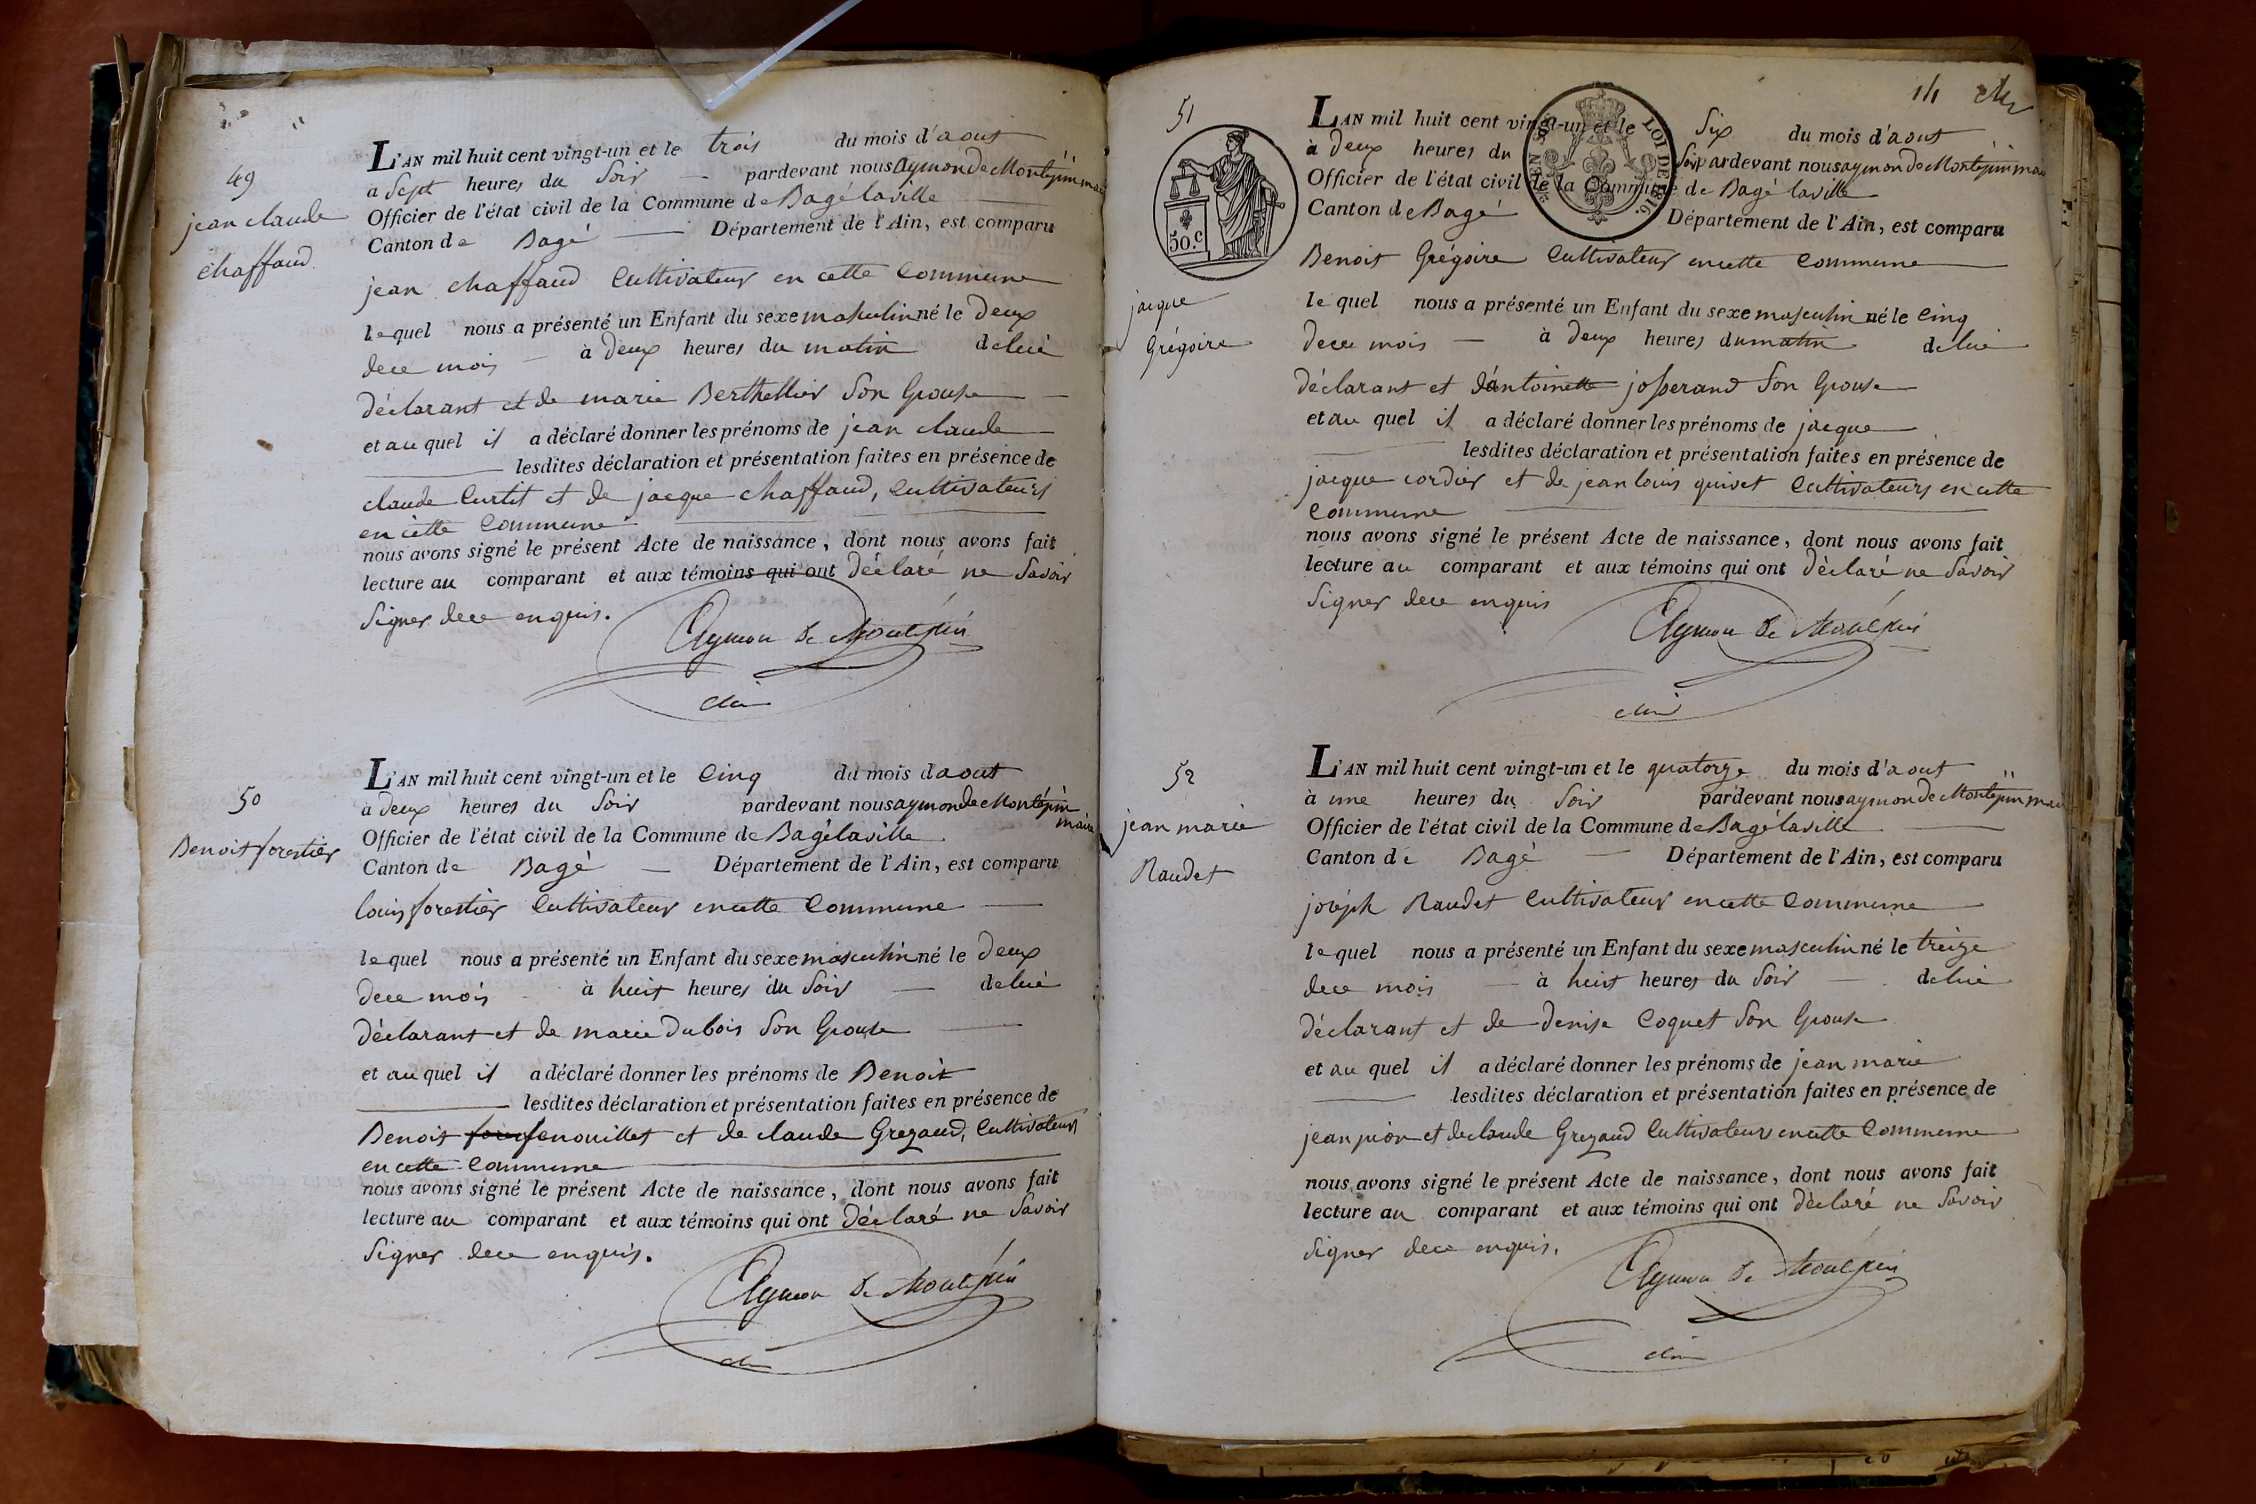 49
jean claude
chaffaud
L'AN mil huit cent vingt-un et le trois du mois d'aout
a sept heures du soir pardevant nous aymon de Montépin mai
Officier de l'état civil de la Commune de Bagé laville
Canton de Bagé Département de l'Ain, est comparu
jean chaffaud Cultivateur en cette Commune
lequel nous a présenté un Enfant du sexe masculin né le deux
dece mois à deux heures du matin de lui
déclarant et de marie Berthellier son Epouse
et au quel il a déclaré donner les prénoms de jean claude
lesdites déclaration et présentation faites en présence de
claude Curtit et de jacque chaffaud, Cultivateurs
en cette Commune
nous avons signé le présent Acte de naissance, dont nous avons fait
lecture au comparant et aux témoins qui ont déclaré ne Savoir
signer dece enquis.
Aymon de Montépin
50
Benoit forestier
L'AN mil huit cent vingt-un et le Cinq du mois d'aout
à deux heures du soir pardevant nous aymon de Montépin
maire
Officier de l'état civil de la Commune de Bagé laville
Canton de Bagé Département de l'Ain, est comparu
louis forestier Cultivateur en cette Commune
lequel nous a présenté un Enfant du sexe masculin né le deux
dece mois à huit heures du soir de lui
déclarant et de marie Dubois son Epouse
et au quel il a déclaré donner les prénoms de Benoit
lesdites déclaration et présentation faites en présence de
Benoit fenouillet et de claude Grezaud, Cultivateurs
en cette Commune
nous avons signé le présent Acte de naissance, dont nous avons fait
lecture au comparant et aux témoins qui ont déclaré ne Savoir
signer dece enquis.
Aymon de Montépin
51
50.c
jacque
Grégoire
LOI DE 1816.
L'AN mil huit cent vingt-un et le Six du mois d'aout
à deux heures du Soir pardevant nous aymon de Montépin mai
Officier de l'état civil de la Commune de Bagé laville
Canton de Bagé Département de l'Ain, est comparu
Benoit Grégoire Cultivateur en cette Commune
le quel nous a présenté un Enfant du sexe masculin né le Cinq
dece mois à deux heures du matin de lui
déclarant et d'antoinette josserand son Epouse
et au quel il a déclaré donner les prénoms de jacque
lesdites déclaration et présentation faites en présence de
jacque cordier et de jean louis quivet Cultivateurs en cette
Commune
nous avons signé le présent Acte de naissance, dont nous avons fait
lecture au comparant et aux témoins qui ont déclaré ne Savoir
signer dece enquis
Aymon de Montépin
52
jean marie
Raudet
L'AN mil huit cent vingt-un et le quatorze du mois d'aout
à une heures du Soir pardevant nous aymon de Montépin mai
Officier de l'état civil de la Commune de Bagé laville
Canton de Bagé Département de l'Ain, est comparu
joseph Raudet Cultivateur en cette Commune
lequel nous a présenté un Enfant du sexe masculin né le treize
dece mois à huit heures du Soir de lui
déclarant et de denise Coquet Son Epouse
et au quel il a déclaré donner les prénoms de jean marie
lesdites déclaration et présentation faites en présence de
jean pion et de claude Grezaud Cultivateurs en cette Commune
nous avons signé le présent Acte de naissance, dont nous avons fait
lecture au comparant et aux témoins qui ont déclaré ne Savoir
signer dece enquis.
Aymon de Montépin